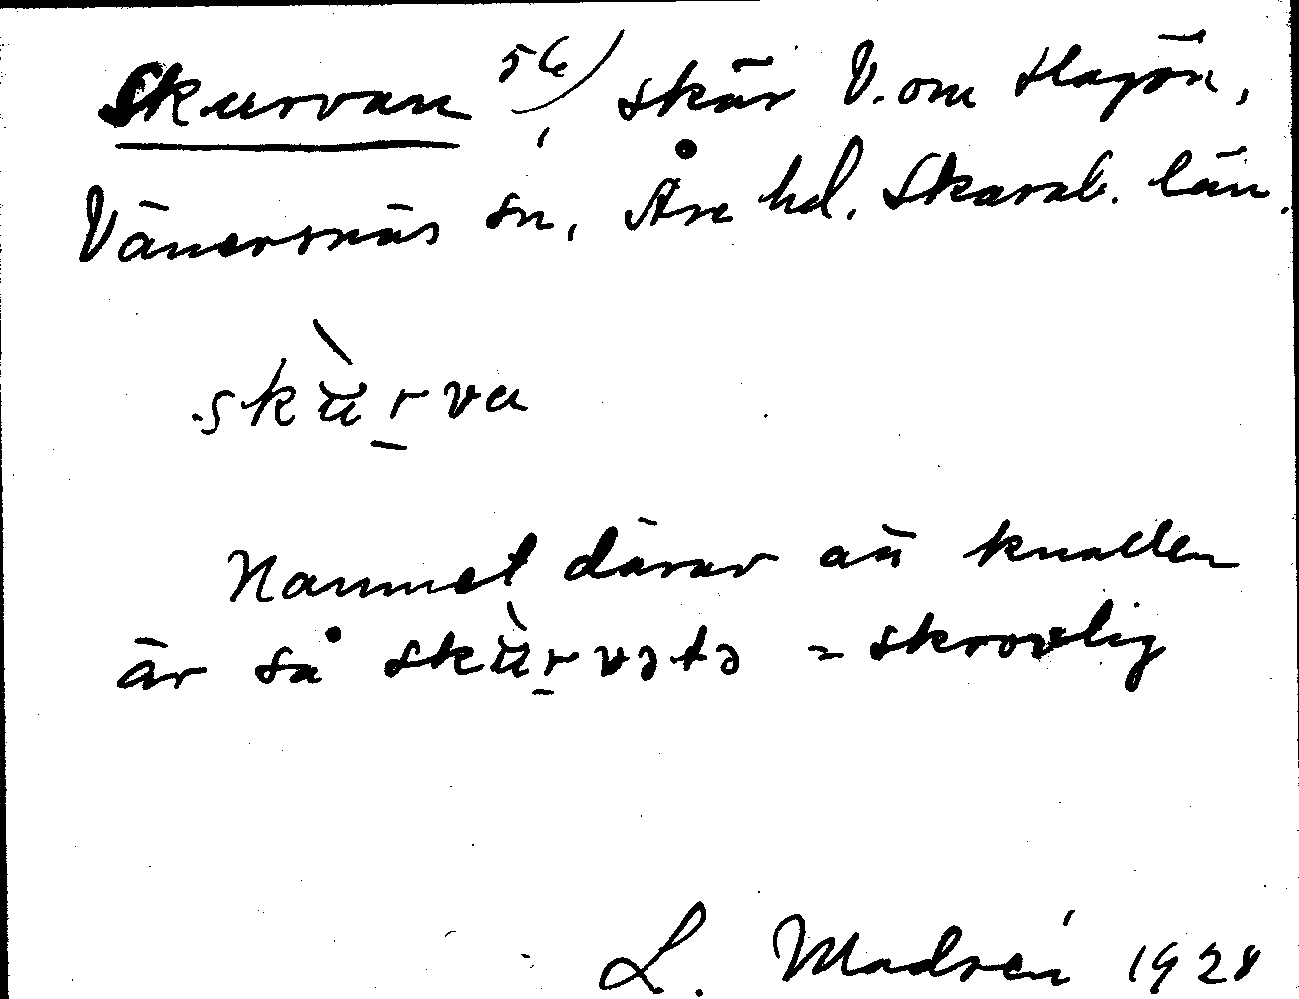 Skurvan 56), skär V. om Hagön,
Vänersnäs sn, Åse hd. Skarab. län.
skùrva
Namnet därav att knallen
är så skùrvətə = skrovlig
L. Modrén 1928